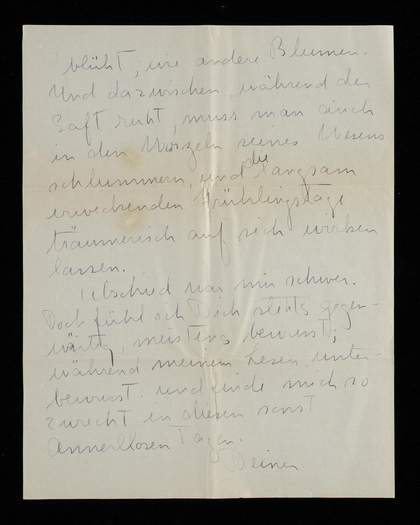 blüht, wie andere Blumen.
Und dazwischen während der
Saft ruht, muss man auch
in den Wurzeln seines Wesens
schlummern, und die langsam
erweckenden Frühlingstage
träumerisch auf sich wirken
lassen.
Abschied war mir schwer.
Doch fühl ich Dich stehts gegen-
wärtig, meistens bewusst,
während meinem Lesen unter-
bewusst. und finde mich so
zurecht in diesen sonst
Tagen.
Deiner